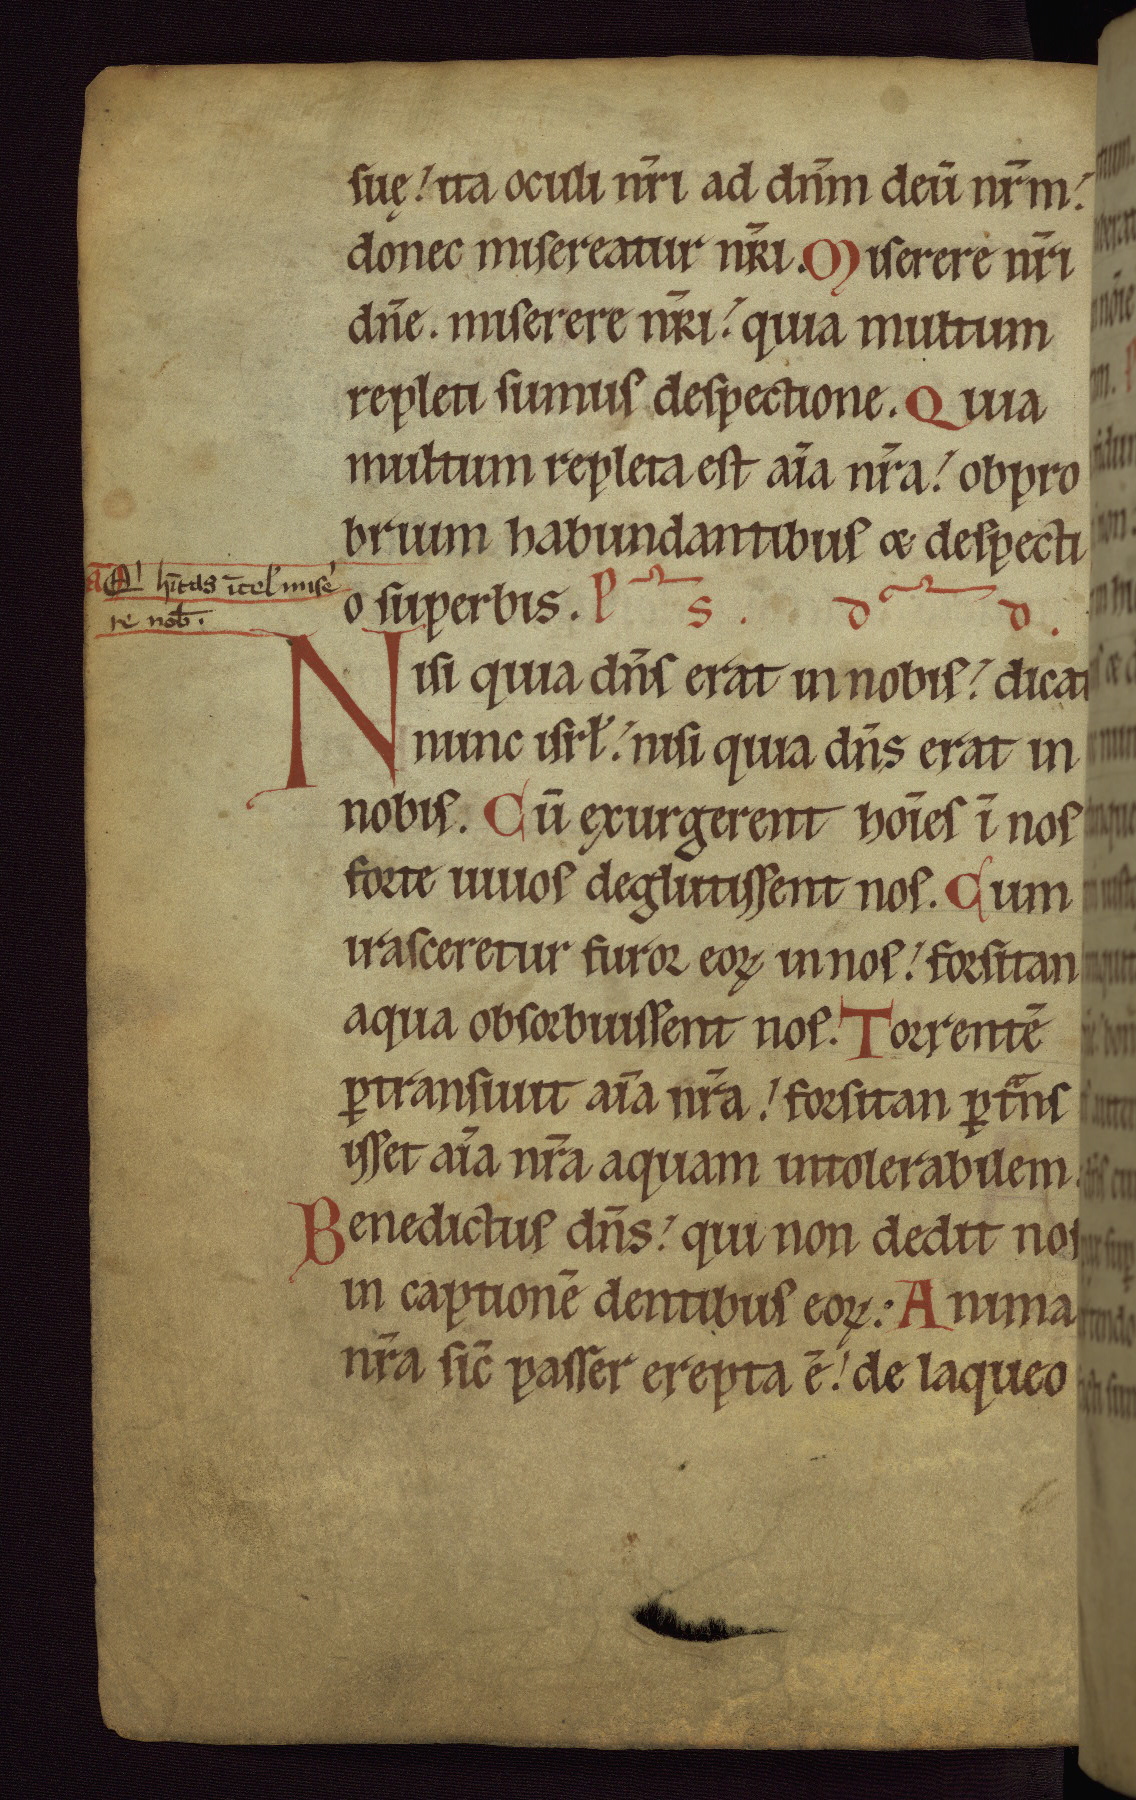 suę! ita oculi nr̄i ad dn̄m deū nr̄m!
donec misereatur nr̄i. Miserere nr̄i
dn̄e. miserere nr̄i! quia multum
repleti sumus despectione. Quia
multum repleta est aīa nr̄a! obpro
brium habundantibus & despecti
o superbis. P s. d d.
ā Q' hītas ī cel' mise
re nob̄.
Nisi quia dn̄s erat in nobis! dicat
nunc isrl̄! nisi quia dn̄s erat in
nobis. Cū exurgerent hoīes ī nos
forte uiuos deglutissent nos. Cum
irasceretur furor eoꝝ in nos! forsitan
aqua obsorbuissent nos. Torrentē
ꝑtransiuit aīa nr̄a! forsitan ꝑtn̄s
isset aīa nr̄a aquam intolerabilem.
Benedictus dn̄s! qui non dedit nos
in captionē dentibus eoꝝ. Anima
nr̄a sic̄ passer erepta ē! de laqueo